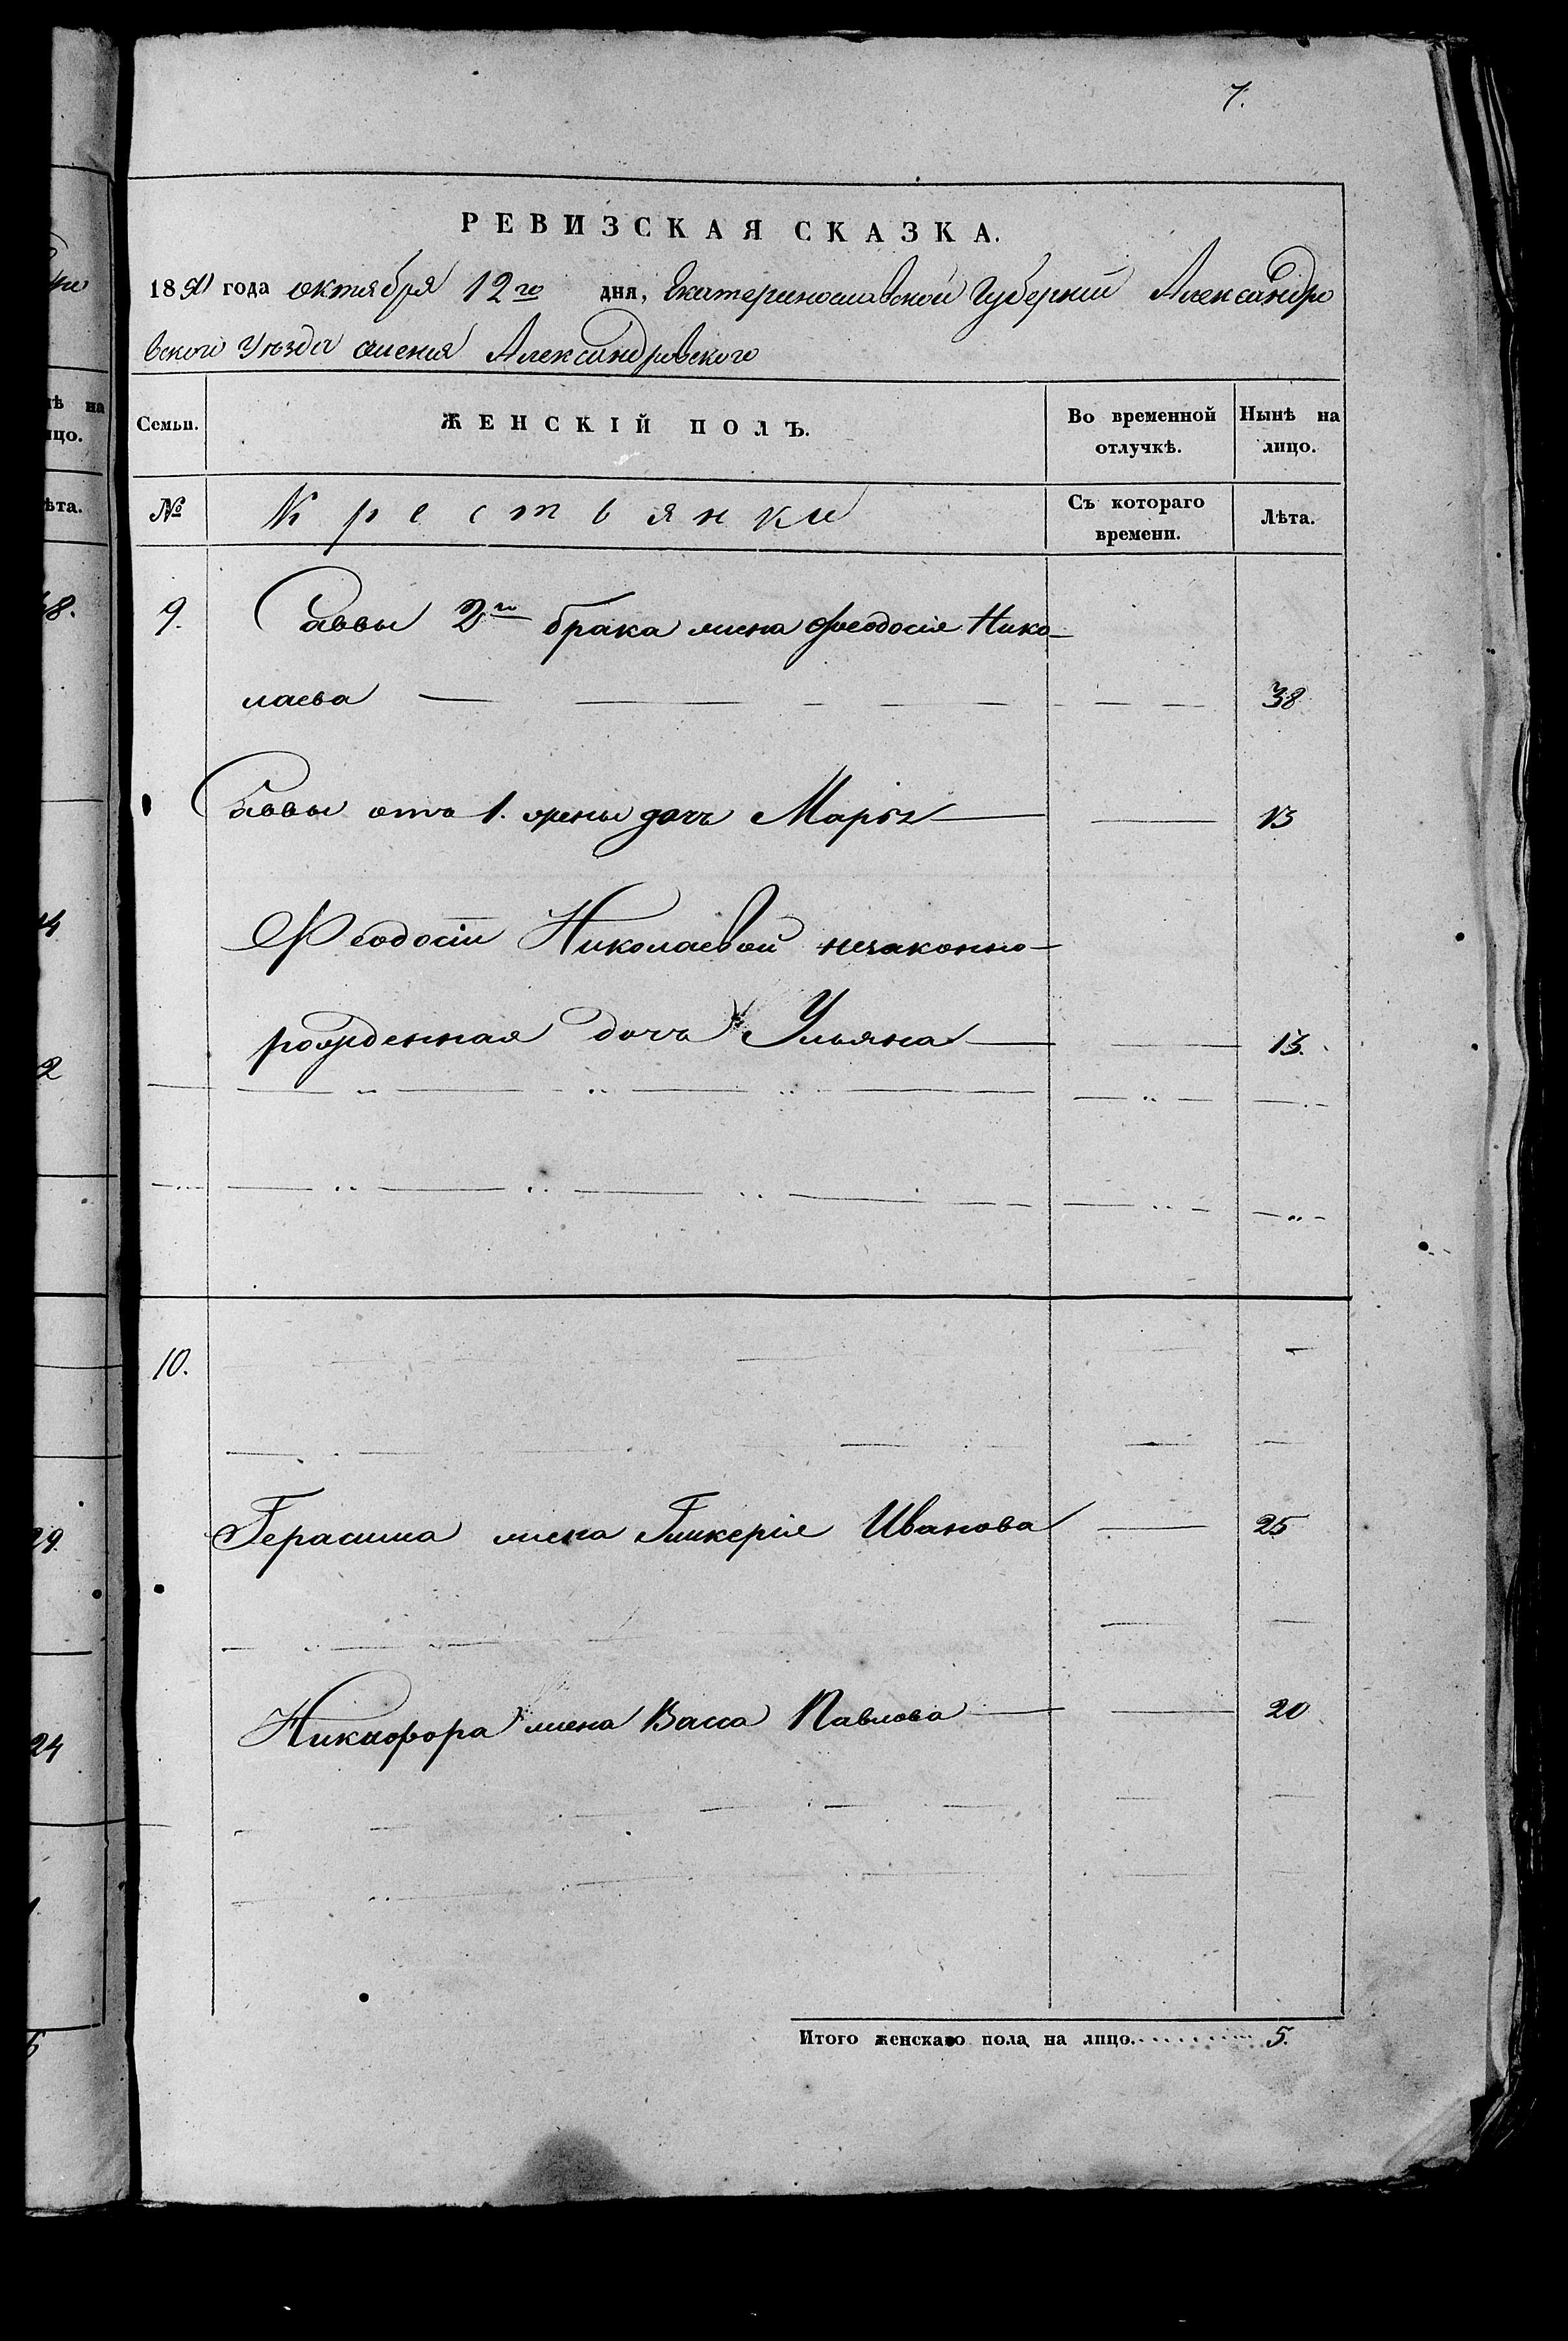 7.
РЕВИЗСКАЯ СКАЗКА.
18 года октября 12го дня, Екатеринославской Губерніи Александро
вского Уезда имения Александровского
Семьи. ЖЕНСКІЙ ПОЛЪ. Во временной отлучкѣ. Нынѣ на лицо.
№ Крестьянки Съ котораго времени. Лѣта.
9. Саввы 2го брака жена Феодосія Нико-
лаева 38
Саввы отъ 1. жены дочь 13
Феодосіи Николаевой незаконно-
рожденная дочь Ульяна 13.
10.
Герасима жена Гликерія Иванова 25
Никифора жена Васса Павлова 20
Итого женскаго пола на лицо. 5.